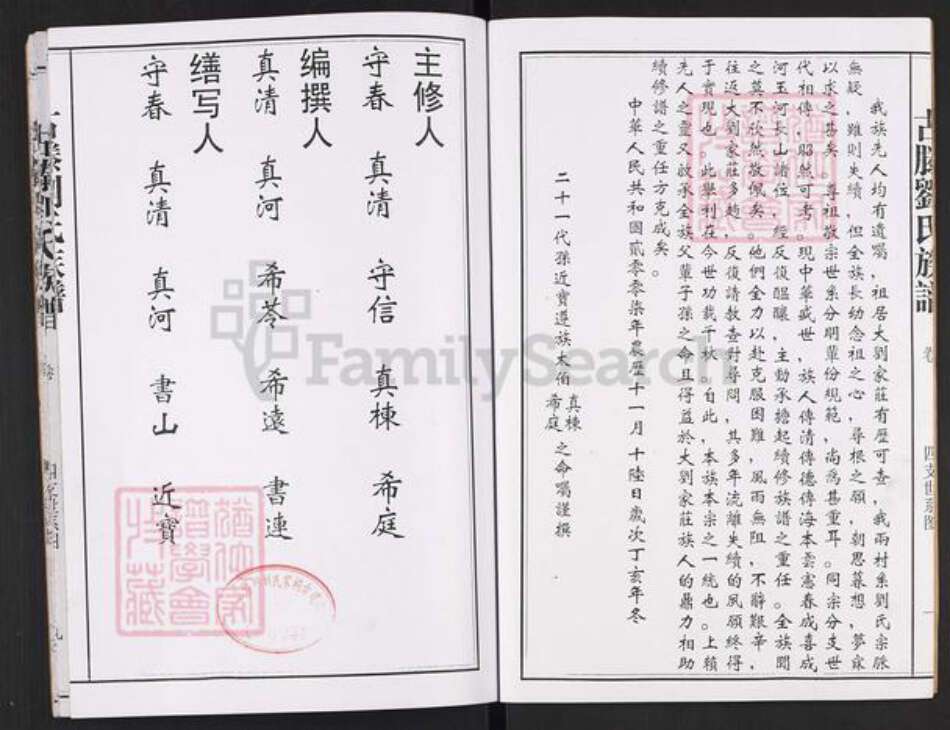 我族先人均有遺囑，祖居大劉家莊有歷可查，我兩村系劉氏宗脈
無疑，雖則失續，但全族長幼念祖之心，尋根之願，朝思暮想，夢寐
以求之甚矣。尊祖敬宗世系分明輩份規範，尚為甚重耳。同宗分支世
代相傳，昭然可考。現中華盛世，族人傳清傳德傳海本雲憲春成喜成
河玉河長山諸位，經反復醞釀，主動承擔起續修族譜之重任。全族聞
之莫不欣然敬佩矣。他們全力以赴克服困難，風雨無阻，不辭艱辛，
往返大劉家莊多趟，反復請教查對尋問，其多年流離失續的夙願終得
于實現也。此舉利在今世功載千秋。自此，本族本宗之一統也。上賴
先人之靈又啟承全族父輩子孫之命且得益於大劉家莊族人的鼎力相助
續修譜之重任方克成矣。
中華人民共和國貳零零柒年農歷十一月十陸日歲次丁亥年冬
二十一代孫近寶遵族太伯真棟希庭之命囑謹撰。
主修人
守春 真清 守信 真棟 希庭
编撰人
真清 真河 希苓 希遠 書連
缮写人
守春 真清 真河 書山 近寶
古滕劉氏族譜
卷
四支世系图
一
FamilySearch